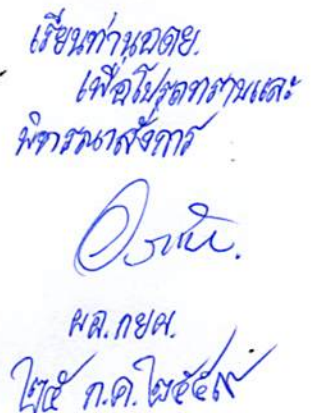 เรียนท่านอดย.
เพื่อโปรดทราบและ
พิจารณาสั่งการ
ผอ.กยผ.
๒๕ ก.ค. ๒๕๕๙